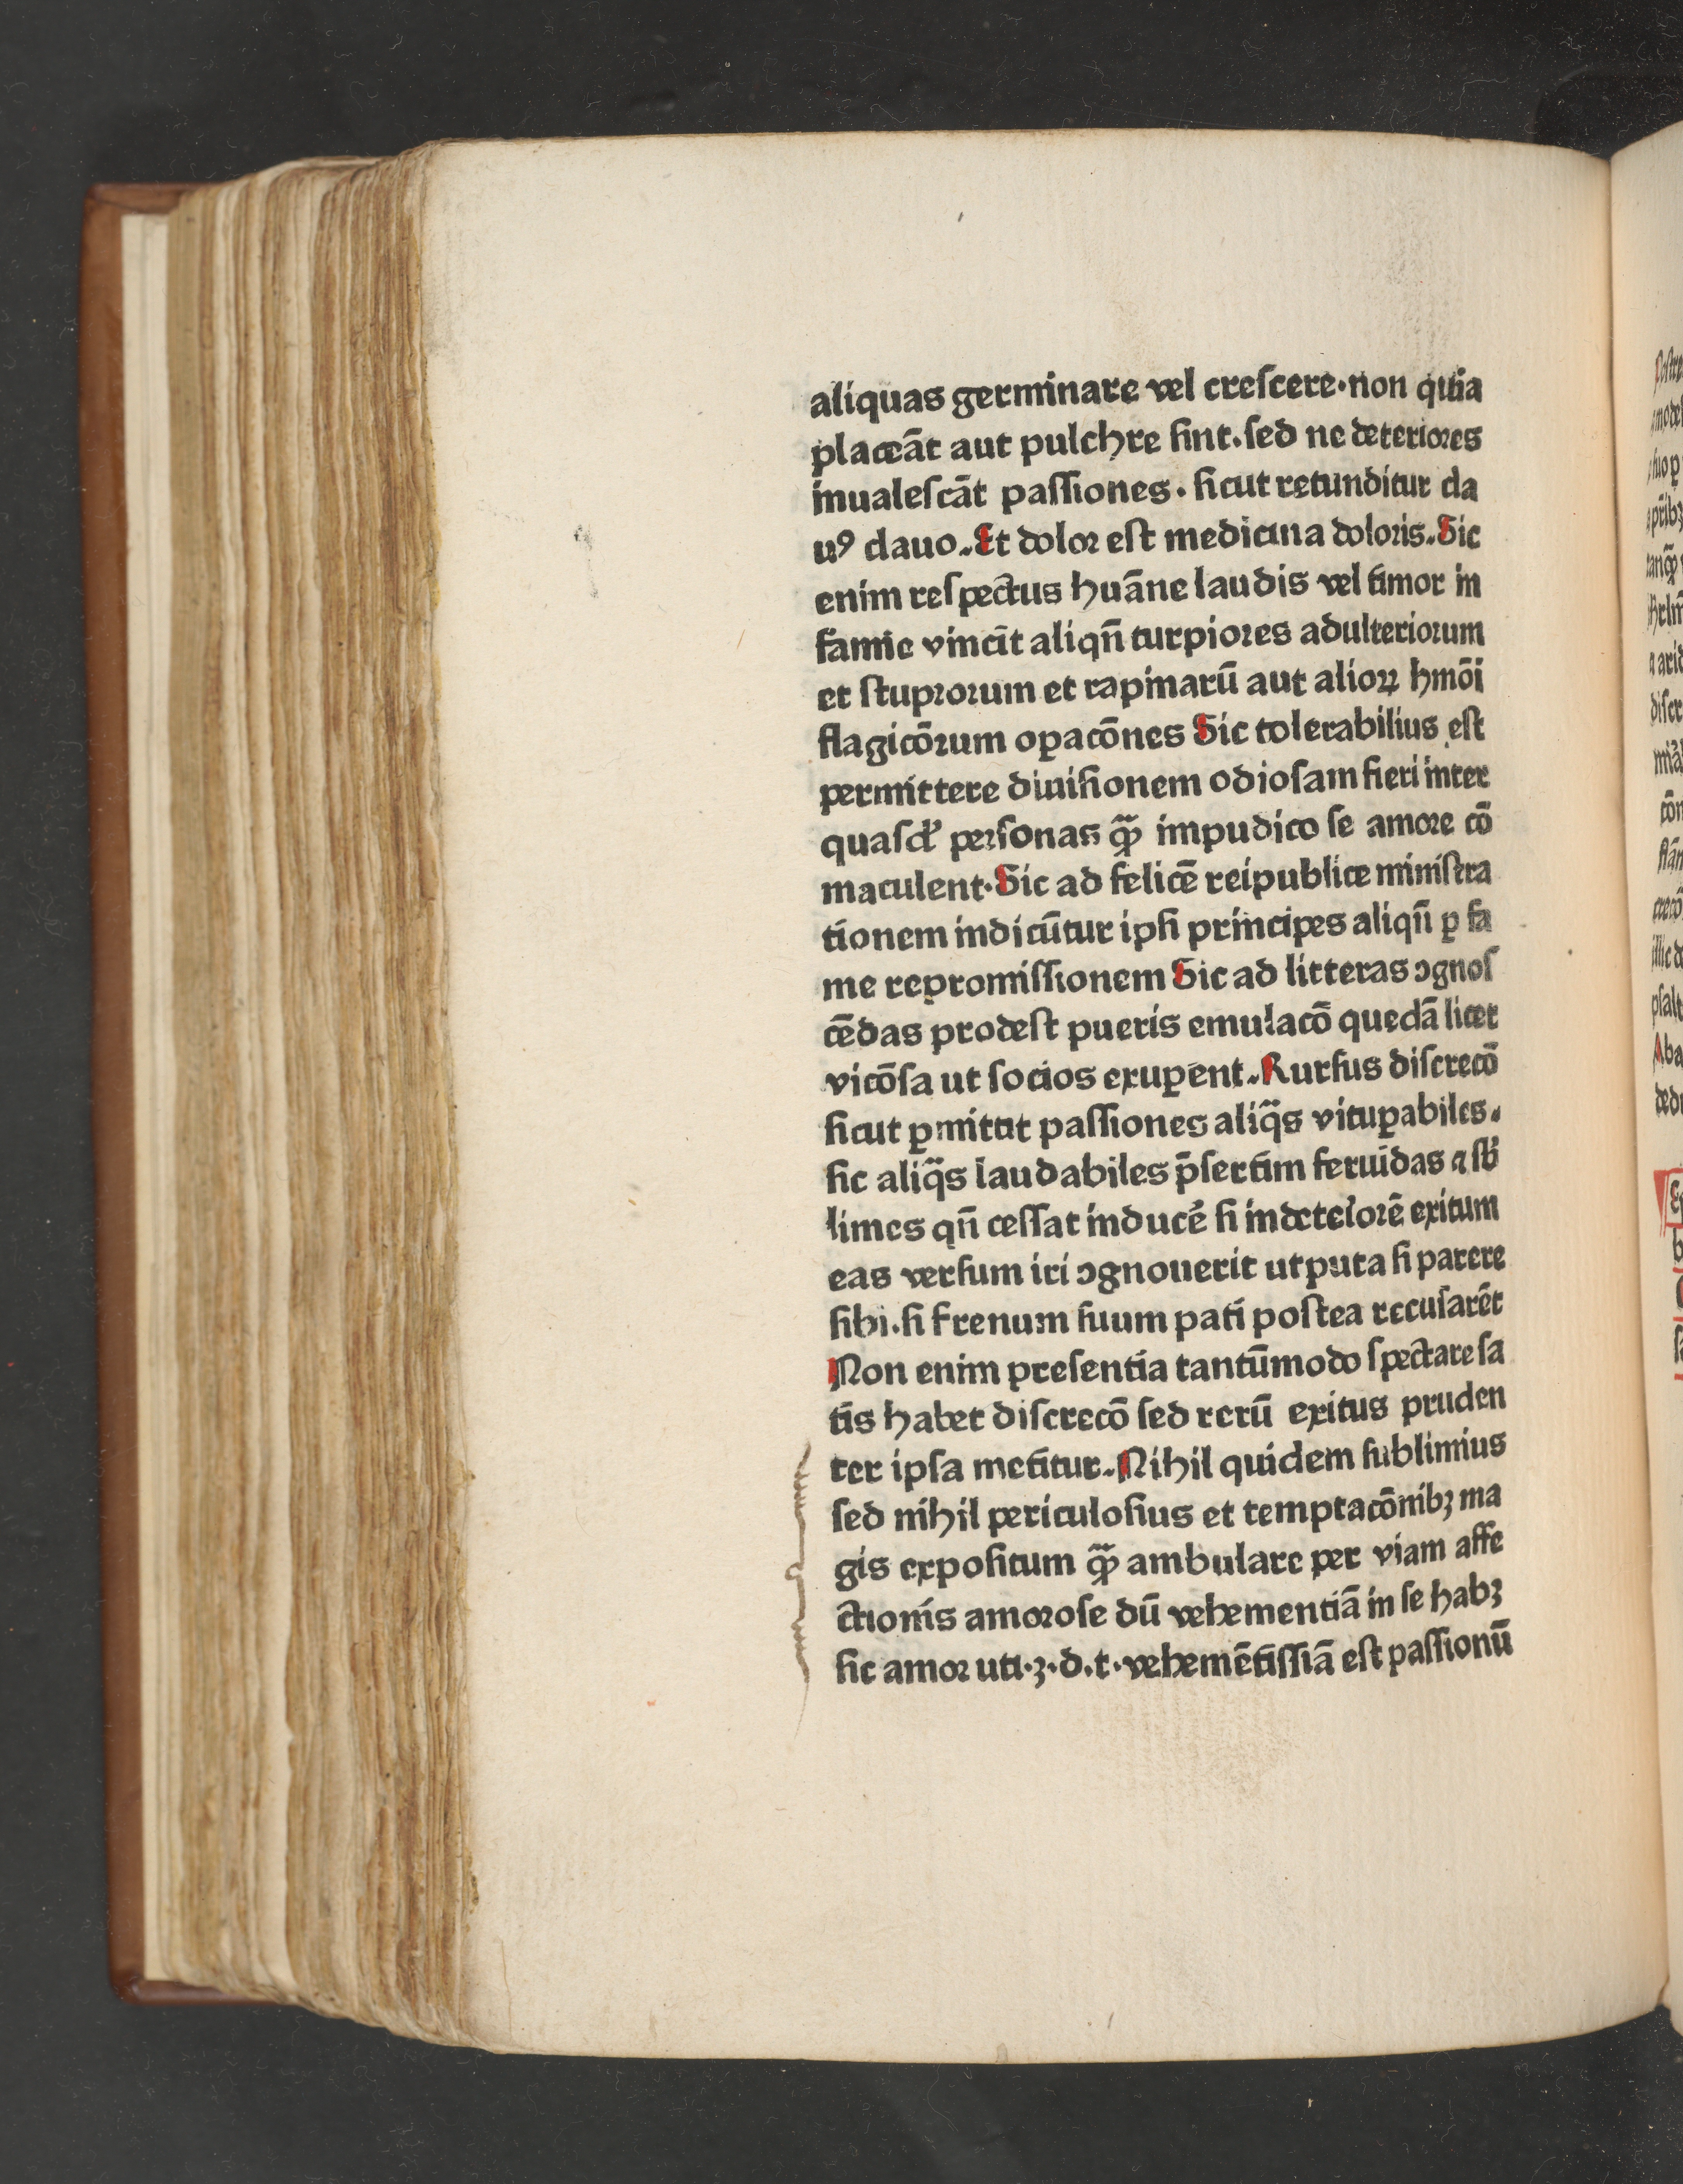 aliquas germinare vel crescere·non quia
placeāt aut pulchre sint.sed ne deteriores
inualescāt passiones·sicut retunditur cla
uꝰ clauo.Et dolor est medicina doloris.Sic
enim respectus huāne laudis vel timor in
famie vincit aliqn̄ turpiores adulteriorum
et stuprorum et rapinarū aut alioꝝ hmōi
flagicōrum oꝑacōnes Sic tolerabilius est
permittere diuisionem odiosam fieri inter
quasdʼ personas ꝙ̄ impudico se amore cō
maculent·Sic ad felicē reipublice ministra
tionem indicūtur ipsi principes aliqn̄ ꝑ fa
me repromissionem Sic ad litteras ꝯgnos
cēdas prodest pueris emulacō quedā licet
vicōsa ut socios exuꝑent.Rursus discrecō
sicut ꝑmittit passiones aliq̄s vituꝑabiles.
sic aliq̄s laudabiles p̄sertim feruidas ⁊ sb̓
limes qn̄ cessat inducē si in deteiorē exitum
eas versum iri ꝯgnouerit utputa si parere
sibi.si frenum suum pati postea recusarēt
Non enim presentia tantūmodo spectare sa
tis habet discrecō sed rerū exitus pruden
ter ipsa metitur.Nihil quidem sublimius
sed nihil periculosius et temptacōnibꝫ ma
gis expositum ꝙ̄ ambulare per viam affe
ctionis amorose dū vehementiā in se habꝫ
sic amor uti·ꝫ·d.t·vehemētissiā est passionū